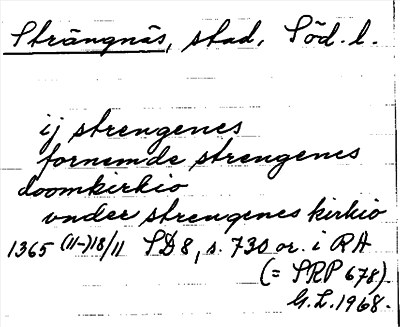 Strängnäs, stad, Söd. l.
ij strengenes
fornemde strengenes
doomkirkio
vnder strengenes kirkio
1365 (11-)18/11 SD 8, s. 730 or. i RA
(= SRP 678).
G.L. 1968.